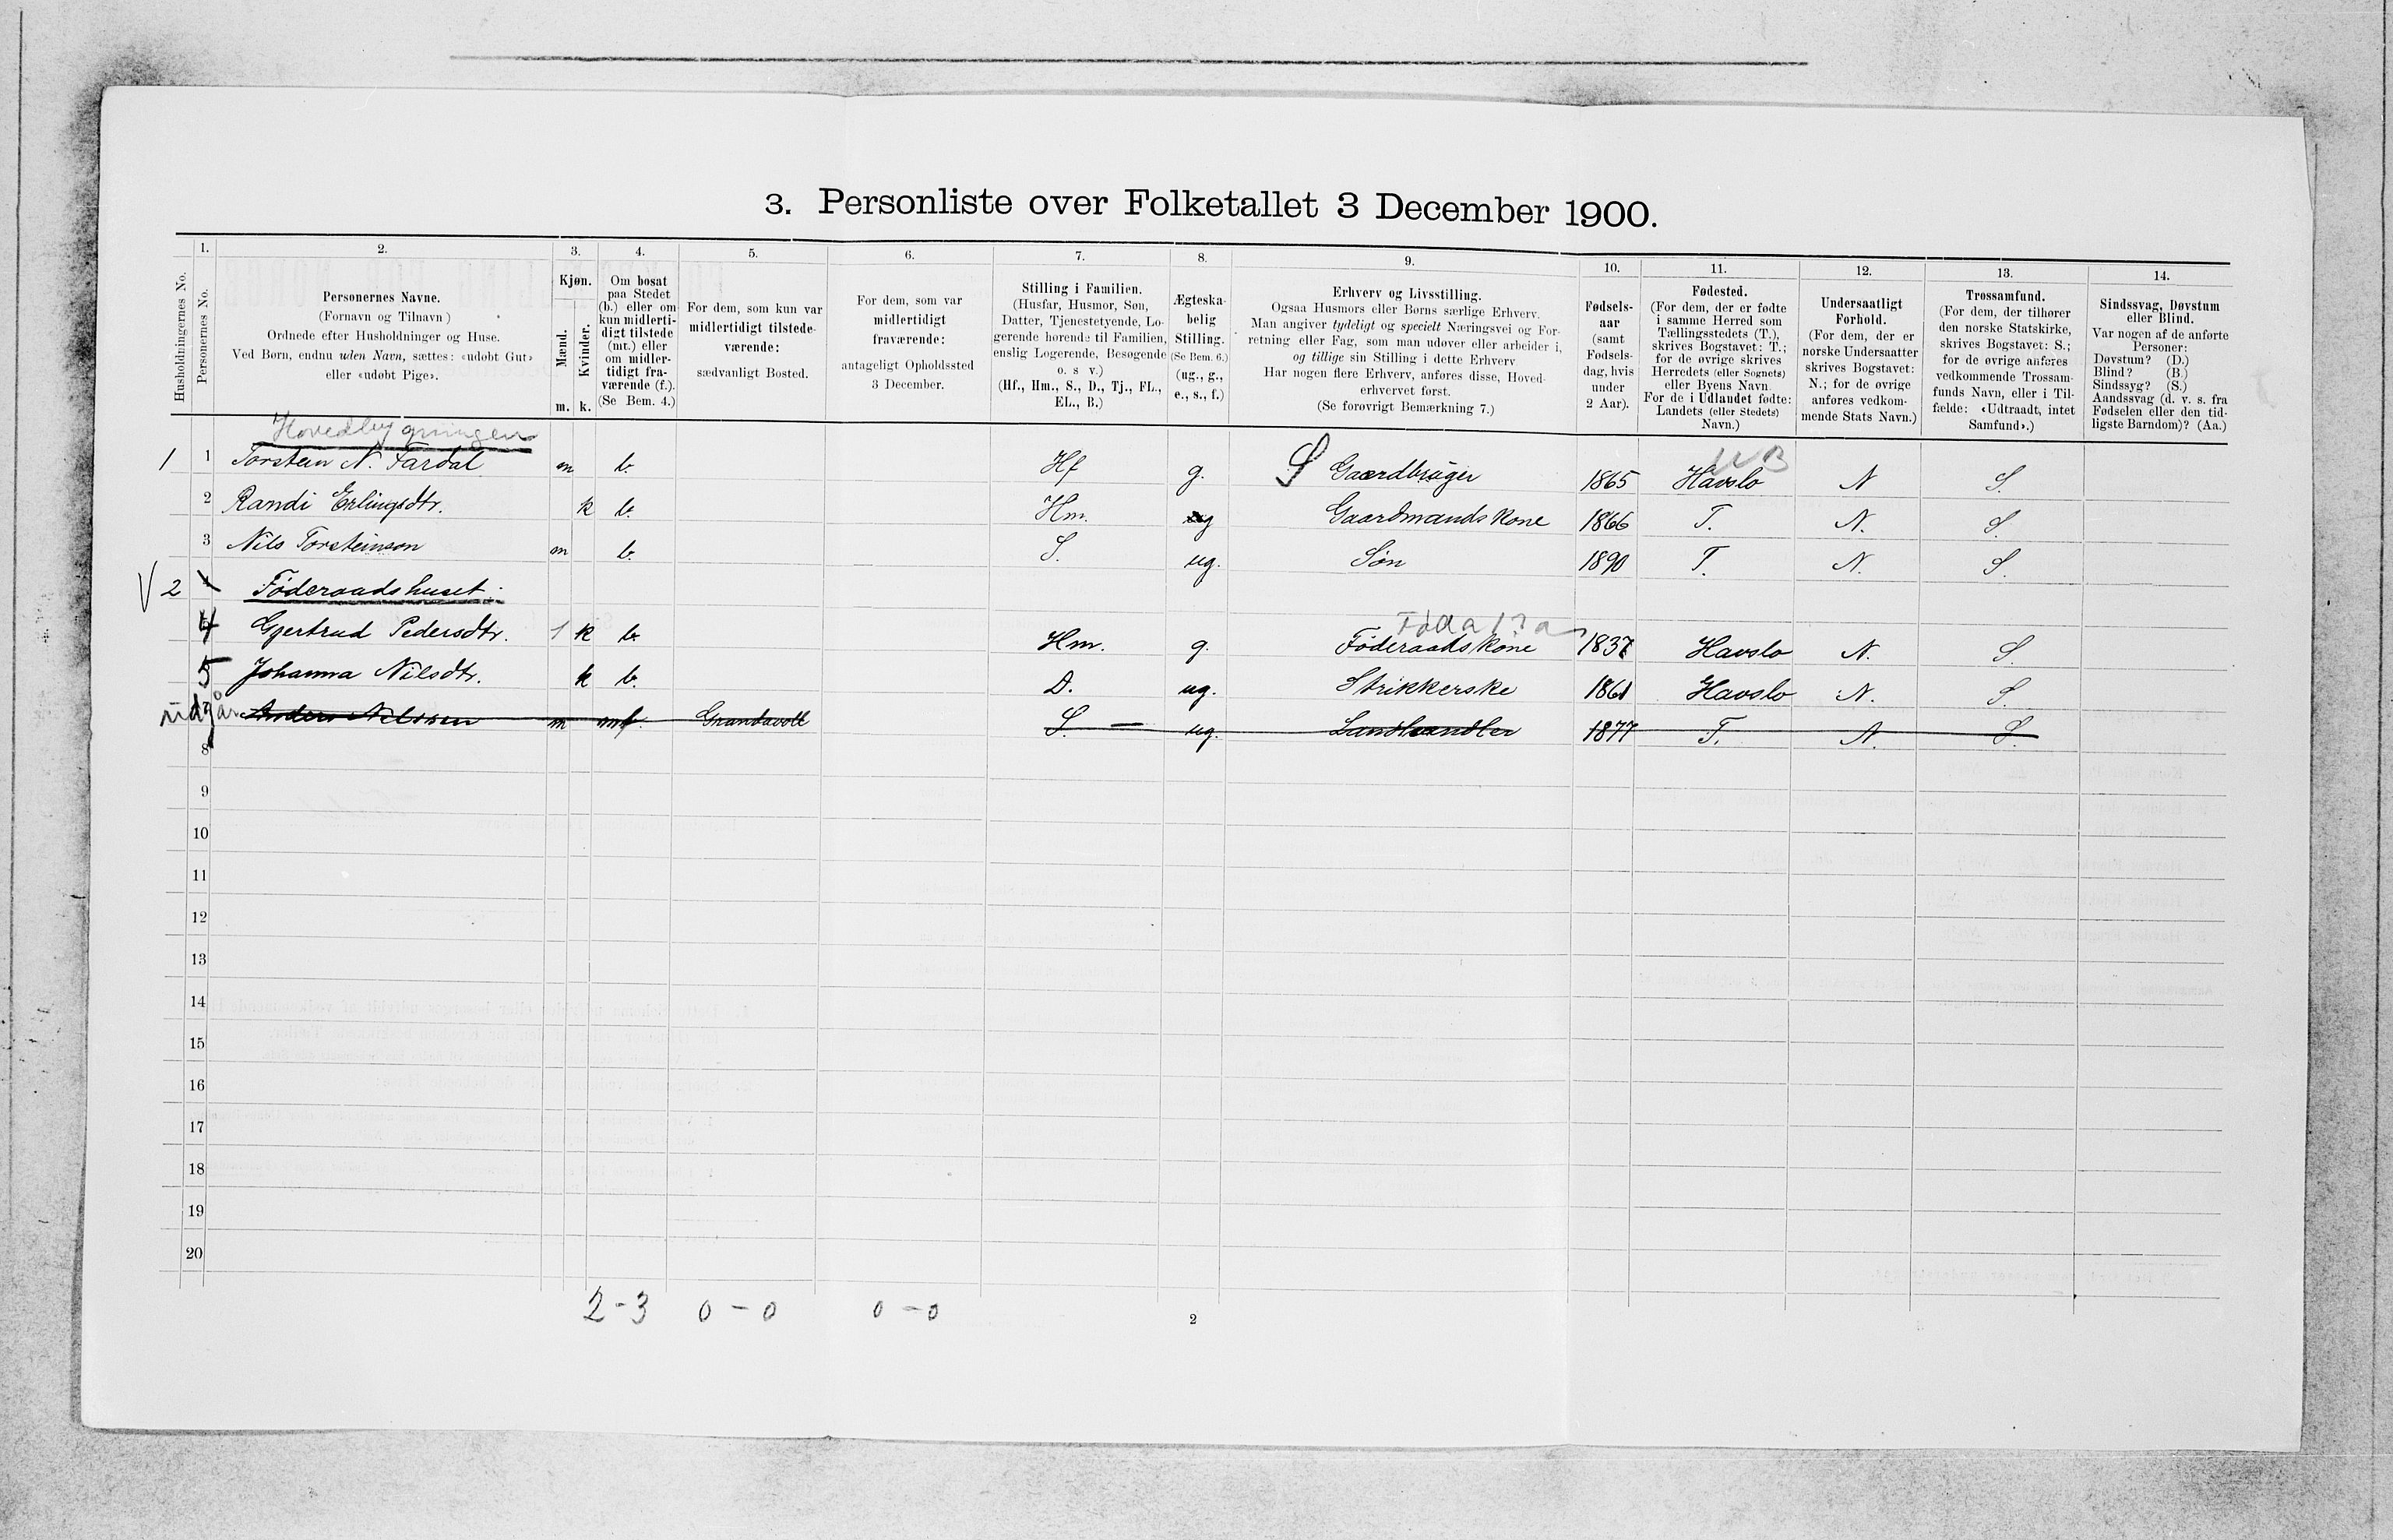 3. Personliste over Folketallet 3 December 1900.
Husholdningernes No.
1.
Personernes No.
2.
Personernes Navne.
(Fornavn og Tilnavn)
Ordnede efter Husholdninger og Huse.
Ved Børn, endnu uden Navn, sættes: «udøbt Gut»
eller «udøbt Pige».
3.
Kjøn.
Mænd.
Kvinder.
m. k.
4.
Om bosat
paa Stedet
(b.) eller om
kun midlerti-
digt tilstede
(mt.) eller
om midler-
tidigt fra-
værende (f.).
(Se Bem. 4.)
5.
For dem, som kun var
midlertidigt tilstede-
værende:
sædvanligt Bosted.
6.
For dem, som var
midlertidigt
fraværende:
antageligt Opholdssted
3 December.
7.
Stilling i Familien.
(Husfar, Husmor, Søn,
Datter, Tjenestetyende, Lo-
gerende hørende til Familien,
enslig Logerende, Besøgende
o. s v.)
(Hf., Hm., S., D., Tj., FL.,
EL., B.)
8.
Ægteska-
belig
Stilling.
(Se Bem. 6.)
(ug., g.,
e., s., f.)
9.
Erhverv og Livsstilling.
Ogsaa Husmors eller Børns særlige Erhverv.
Man angiver tydeligt og specielt Næringsvei og For-
retning eller Fag, som man udøver eller arbeider i,
og tillige sin Stilling i dette Erhverv
Har nogen flere Erhverv, anføres disse, Hoved-
erhvervet først.
(Se forøvrigt Bemærkning 7.)
10.
Fødsels-
aar
(samt
Fødsels-
dag, hvis
under
2 Aar).
11.
Fødested.
(For dem, der er fødte
i samme Herred som
Tællingsstedets (T.),
skrives Bogstavet: T.;
for de øvrige skrives
Herredets (eller Sognets)
eller Byens Navn.
For de i Udlandet fødte:
Landets (eller Stedets)
Navn.)
12.
Undersaatligt
Forhold.
(For dem, der er
norske Undersaatter
skrives Bogstavet:
N.; for de øvrige
anføres vedkom-
mende Stats Navn.)
13.
Trossamfund.
(For dem, der tilhører
den norske Statskirke,
skrives Bogstavet: S.;
for de øvrige anføres
vedkommende Trossam-
funds Navn, eller i Til-
fælde: «Udtraadt, intet
Samfund».)
14.
Sindssvag, Døvstum
eller Blind.
Var nogen af de anførte
Personer:
Døvstum? (D.)
Blind? (B.)
Sindssyg? (S.)
Aandssvag (d. v. s. fra
Fødselen eller den tid-
ligste Barndom)? (Aa.)
Hovedbygningen
1 1 Torstein N. Fardal m b. Hf g. S Gaardbruger 1865 Havslo N S.
2 Randi Erlingsdtr. k b. Hm. g Gaardmandskone 1866 T. N. S.
3 Nils Torsteinson m b. S. ug. Søn 1890 T. N. S.
V 2 Føderaadshuset.
4 Gjertrud Pedersdtr. 1 k b. Hm. g. Føderaadskone Havslo N. S.
5 Johanna Nilsdtr. k b. D. ug. Strikkerske 1861 Havslo N. S.
udgår Anders Nilssen m mt. Grandavoll S. ug. Landhandler 1877 T. N. S.
8
9
10
11
12
13
14
15
16
17
18
19
20
2-3 0-0 0-0
2